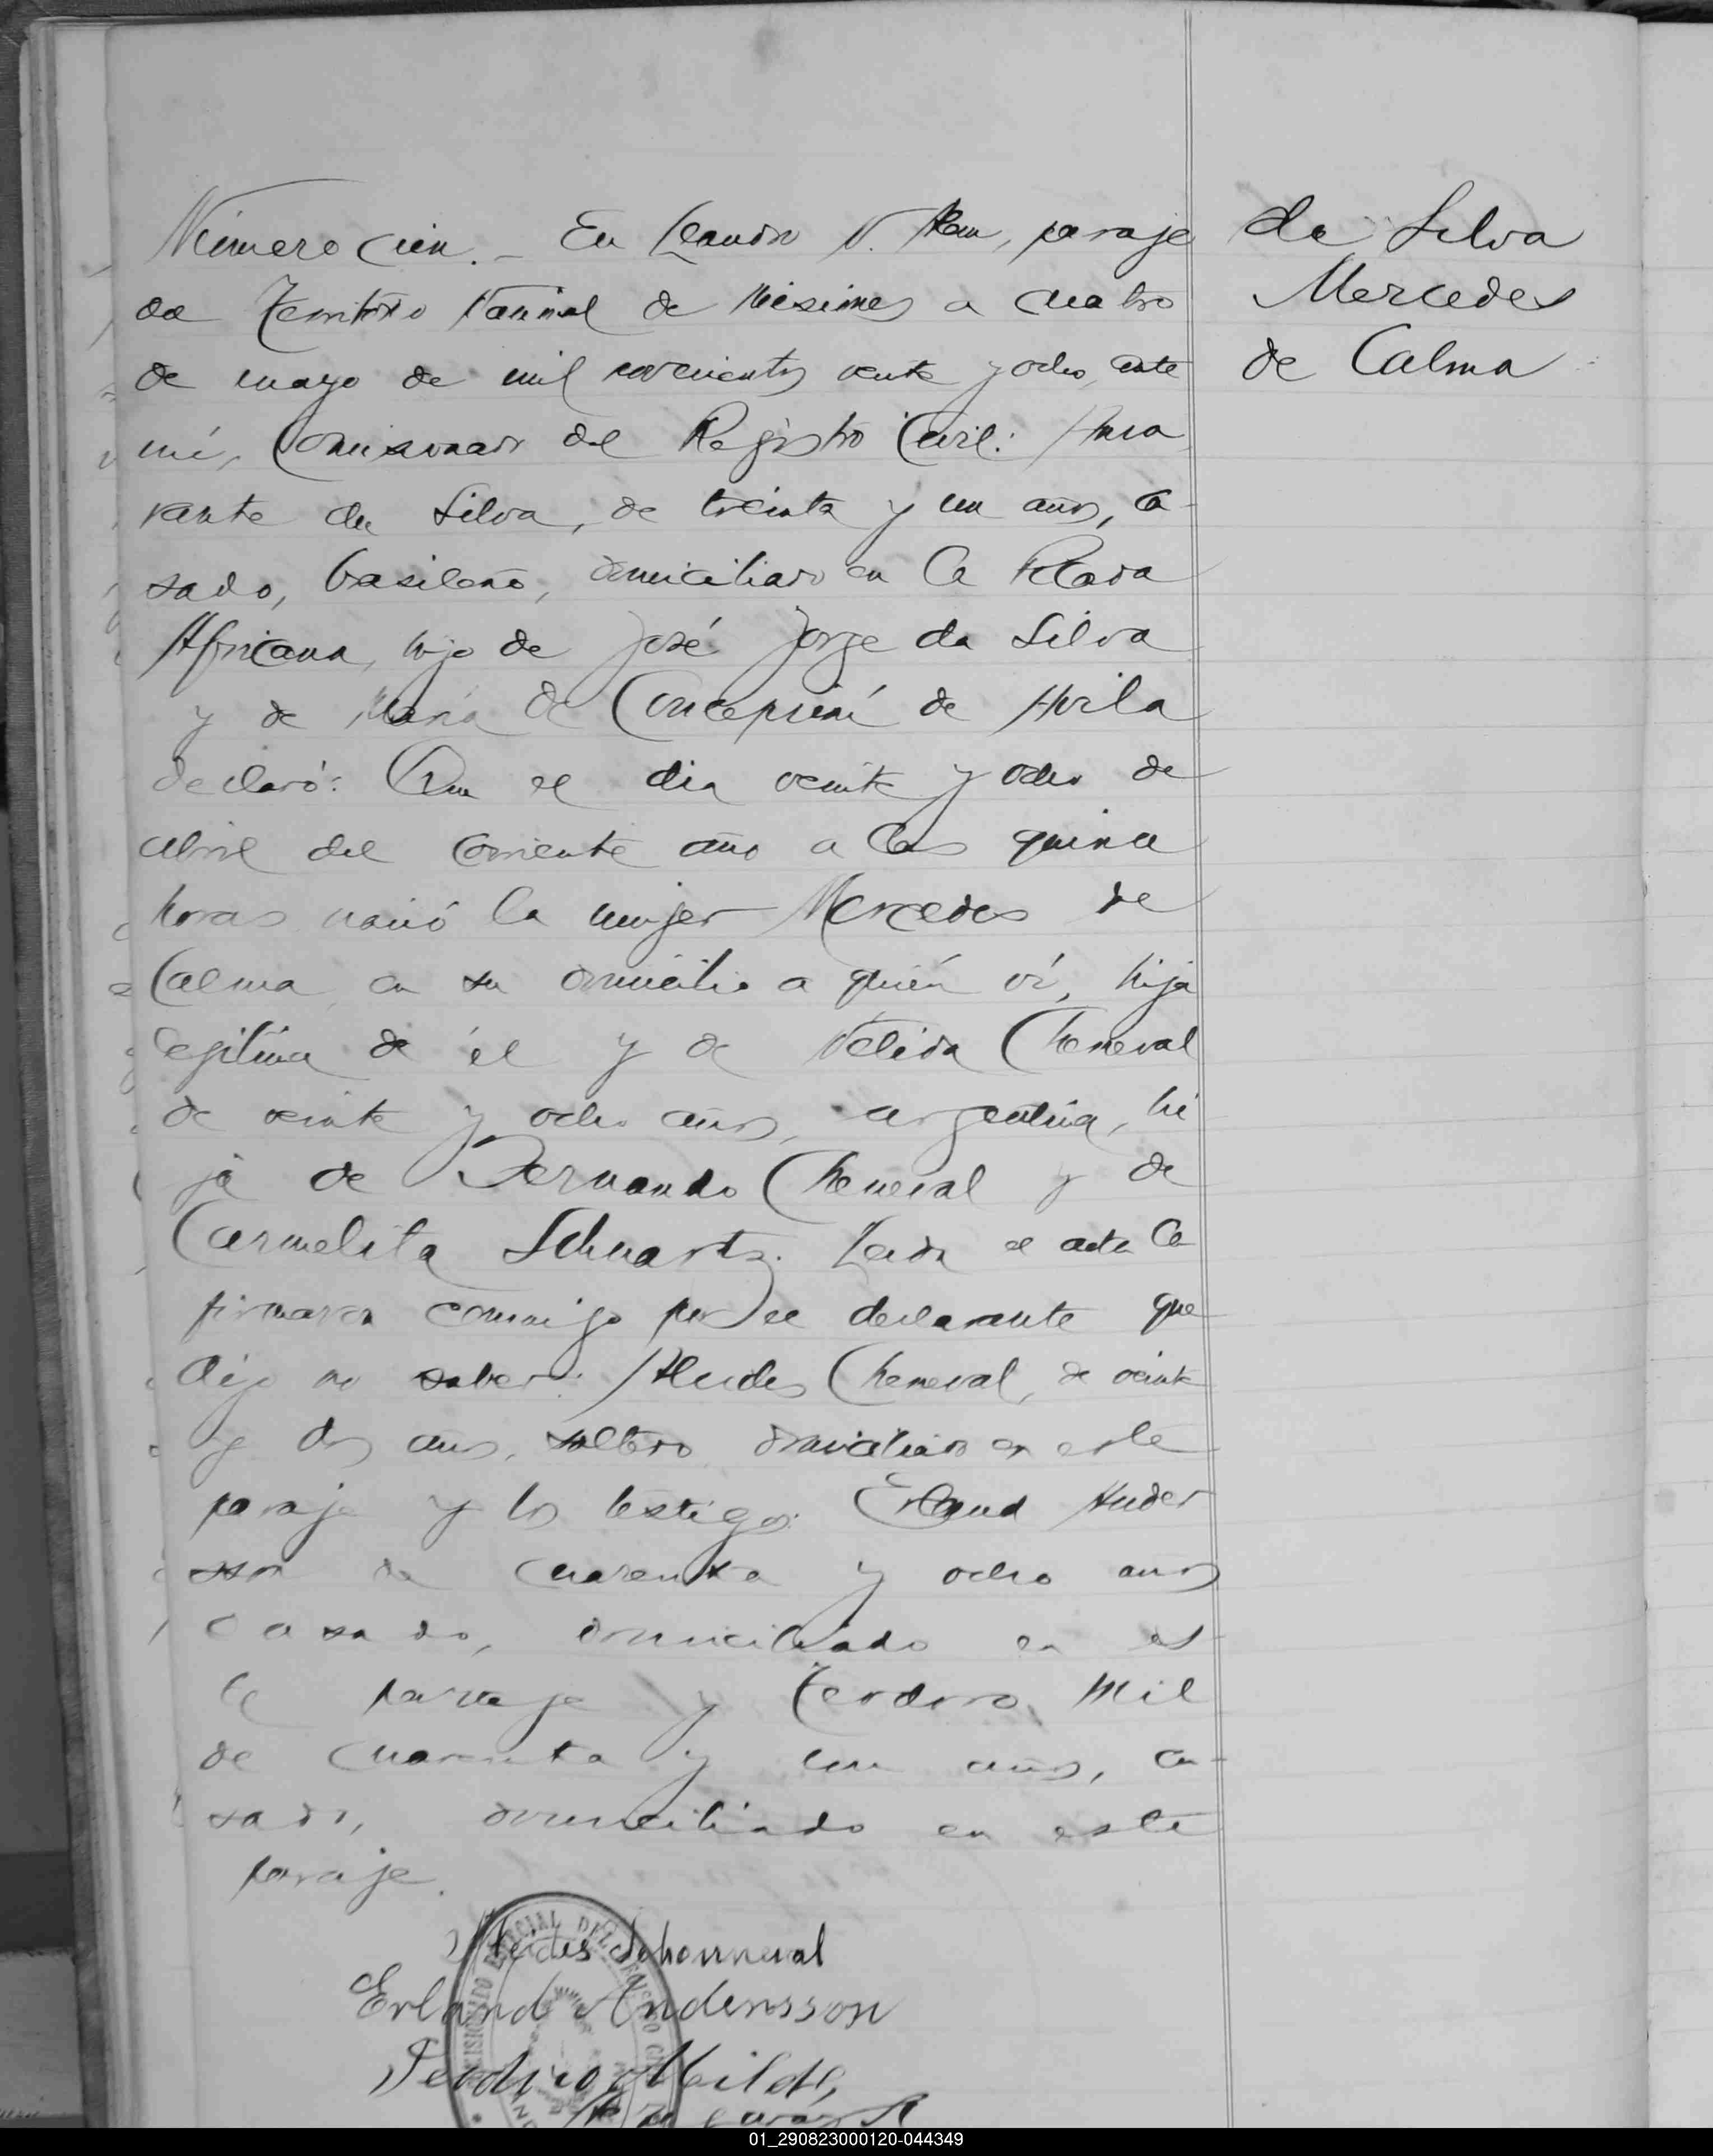 Número cien.- En Leandro N. Alem, paraje
del Territorio Nacional de Misiones a cuatro
de mayo de mil novecientos veinte y ocho, ante
mí, Comisionado del Registro Civil: Ama
rante da Silva, de treinta y un años, ca-
sado, brasileño, domiciliado en la Picada
Africana, hijo de José Jorge da Silva
y de María de Concepción de Avila
declaró: Que el dia veinte y ocho de
abril del corriente año a las quince
horas nació la mujer Mercedes de
Calma, en su domicilio a quién ví, hija
legítima de él y de Nelida Cheneval
de veinte y ocho años, argentina, hi
ja de Fernando Cheneval y de
Carmelita Schuartz. Leida el acta la
firmaron conmigo por el declarante que
dijo no saber: Alcides Cheneval, de veinte
y dos años, soltero domiciliado en este
paraje y los testigos: Erland Ander
sson de cuarenta y ocho años
casado, domiciliado en es
te paraje y Teodoro Mil
de cuarenta y un años, ca-
sado, domiciliado en este
paraje.
Alcides Schonneval
Erland Anderssson
Teodoro
da Silva
Mercedes
de Calma
01_290823000120-044349